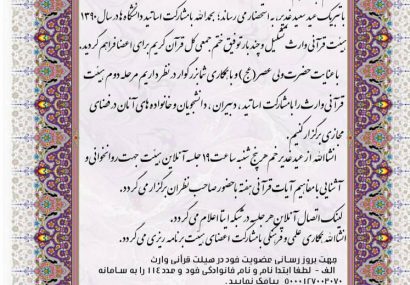 با تبریک عید سعید غدیر، به استحضار می رساند؛ بحمدالله با مشارکت اساتید دانشگاه ها در سال ۱۳۹۰
هیئت قرآنی وارث تشکیل و چند بار توفیق ختم جمعی کل قرآن کریم برای اعضا فراهم گردید.
با عنایت حضرت ولی عصر (عج) و با یاری شما بزرگوار در نظر داریم مرحله دوم هیئت
قرآنی وارث را با مشارکت اساتید، دبیران، دانشجویان و خانواده های آنان در فضای
مجازی برگزار کنیم.
انشاالله از عید غدیر خم هر پنج شنبه ساعت ۱۹ جلسه آنلاین هیئت جهت روانخوانی و
آشنایی با مفاهیم آیات قرآنی هفته با حضور صاحب نظران برگزار می گردد.
لینک اتصال آنلاین هر جلسه در شبکه ایتا اعلام می گردد.
انشاالله همکاری علمی و فرهنگی با مشارکت اعضای هیئت برنامه ریزی می گردد.
جهت بروز رسانی عضویت خود در هیئت قرآنی وارث
الف - لطفا ابتدا نام و نام خانوادگی خود و عدد ۱۱۴ را به سامانه
۵۰۰۰۱۲۷۰۰۳۰۷۰ پیامک نمایید.